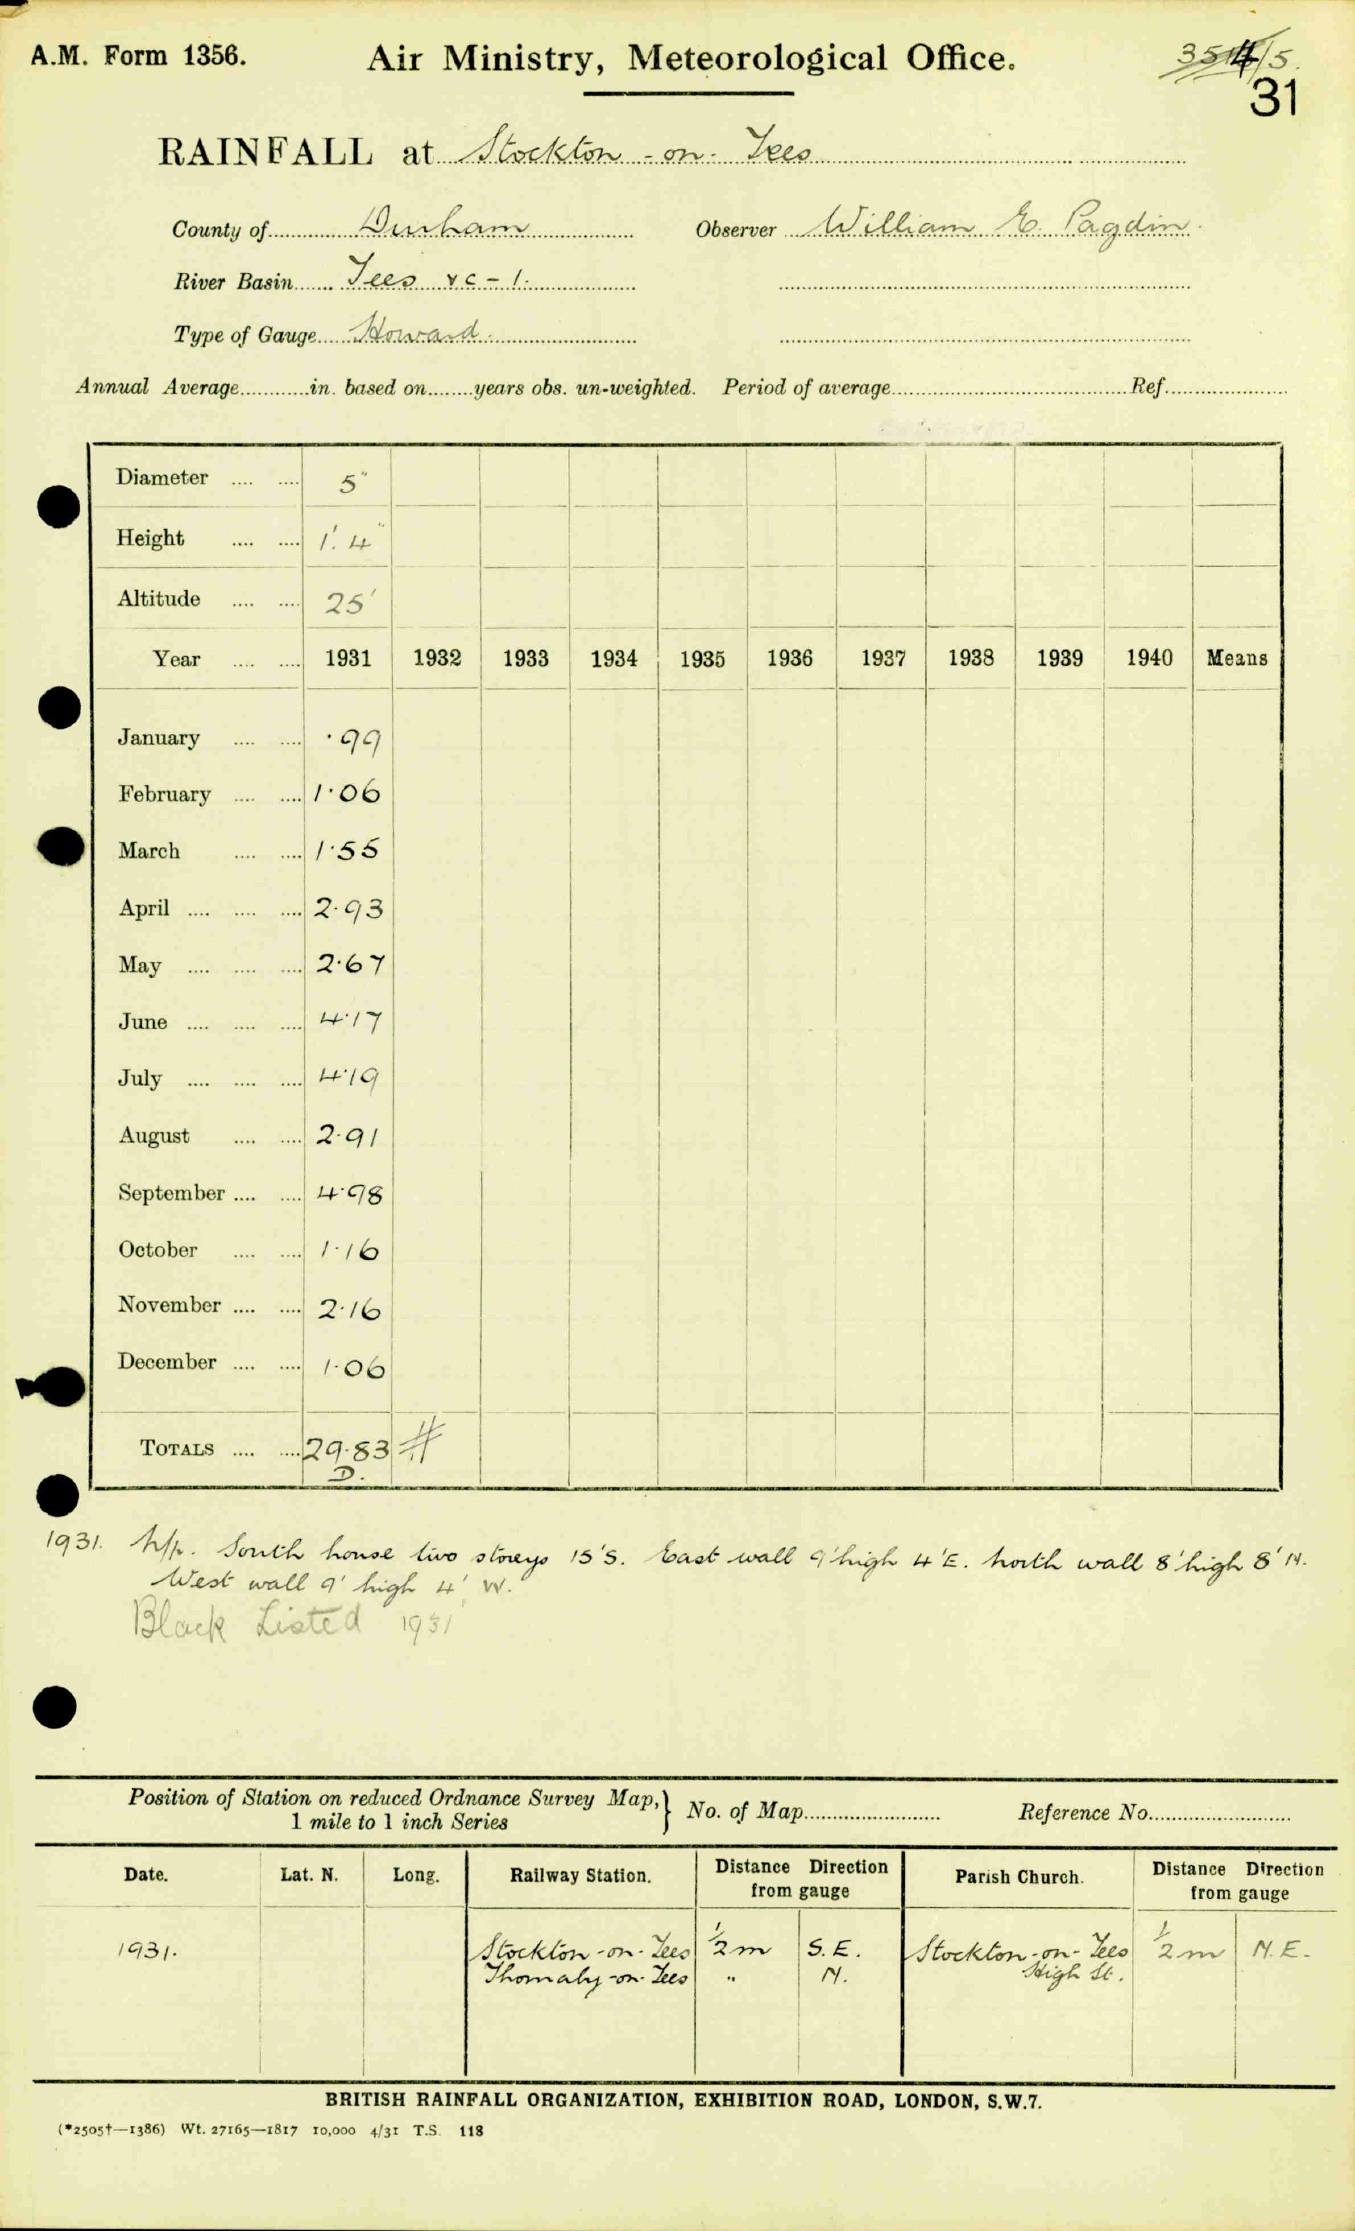 A.M. Form 1356. Air Ministry, Meteorological Office.
31
RAINFALL at Stockton-on-Tees
County of Durham Observer William E. Pagdin
River Basin Tees & c - 1.
Type of Gauge Howard.
Annual Average in. based on years obs. un-weighted. Period of average Ref.
Diameter 5"
Height 1'. 4"
Altitude 25'
Year 1931 1932 1933 1934 1935 1936 1937 1938 1939 1940 Means
January ·99
February 1·06
March 1·55
April 2·93
May 2·67
June 4·17
July 4·19
August 2·91
September 4·98
October 1·16
November 2·16
December 1·06
TOTALS 29·83 #
D.
1931. South house two storeys 15'S. East wall 9'high 4'E. North wall 8'high 8'N.
West wall 9' high 4' W.
Black Listed 1931
Position of Station on reduced Ordnance Survey Map, 1 mile to 1 inch Series } No. of Map Reference No.
Date. Lat. N. Long. Railway Station. Distance Direction from gauge Parish Church. Distance Direction from gauge
1931. Stockton-on-Tees 1/2 m S.E. Stockton-on-Tees 1/2 m N.E.
Thornaby-on-Tees " N. High St.
BRITISH RAINFALL ORGANIZATION, EXHIBITION ROAD, LONDON, S.W.7.
(*2505†—1386) Wt. 27165—1817 10,000 4/31 T.S. 118